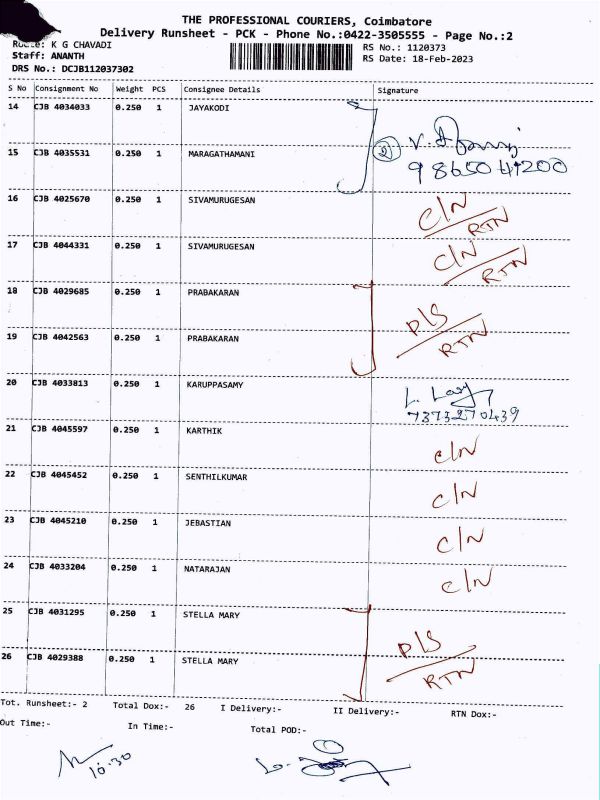 THE PROFESSIONAL COURIERS, Coimbatore
Delivery Runsheet - PCK - Phone No.:0422-3505555 - Page No.:2
Route: K G CHAVADI
RS No.: 1120373
Staff: ANANTH
RS Date: 18-Feb-2023
DRS No.: DCJB112037302
S No Consignment No Weight PCS Consignee Details Signature
14 CJB 4034033 0.250 1 JAYAKODI
15 CJB 4035531 0.250 1 MARAGATHAMANI 2
16 CJB 4025670 0.250 1 SIVAMURUGESAN C/N RTN
17 CJB 4044331 0.250 1 SIVAMURUGESAN C/N RTN
18 CJB 4029685 0.250 1 PRABAKARAN
D/S RTN
19 CJB 4042563 0.250 1 PRABAKARAN
20 CJB 4033813 0.250 1 KARUPPASAMY
7373270439
21 CJB 4045597 0.250 1 KARTHIK C/N
22 CJB 4045452 0.250 1 SENTHILKUMAR C/N
23 CJB 4045210 0.250 1 JEBASTIAN C/N
24 CJB 4033204 0.250 1 NATARAJAN C/N
25 CJB 4031295 0.250 1 STELLA MARY
D/S RTN
26 CJB 4029388 0.250 1 STELLA MARY
Tot. Runsheet:- 2 Total Dox:- 26 I Delivery:- II Delivery:- RTN Dox:-
Out Time:- In Time:- Total POD:-
10.30